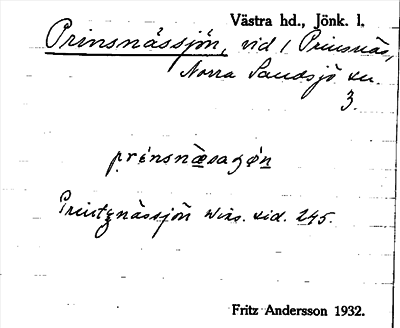 Västra hd., Jönk. l.
Prinsnässjön, vid / Prinsnäs,
Norra Sandsjö sn.
3.
prinsnæsaȡön
Printznässjön Wirs. sid. 245.
Fritz Andersson 1932.